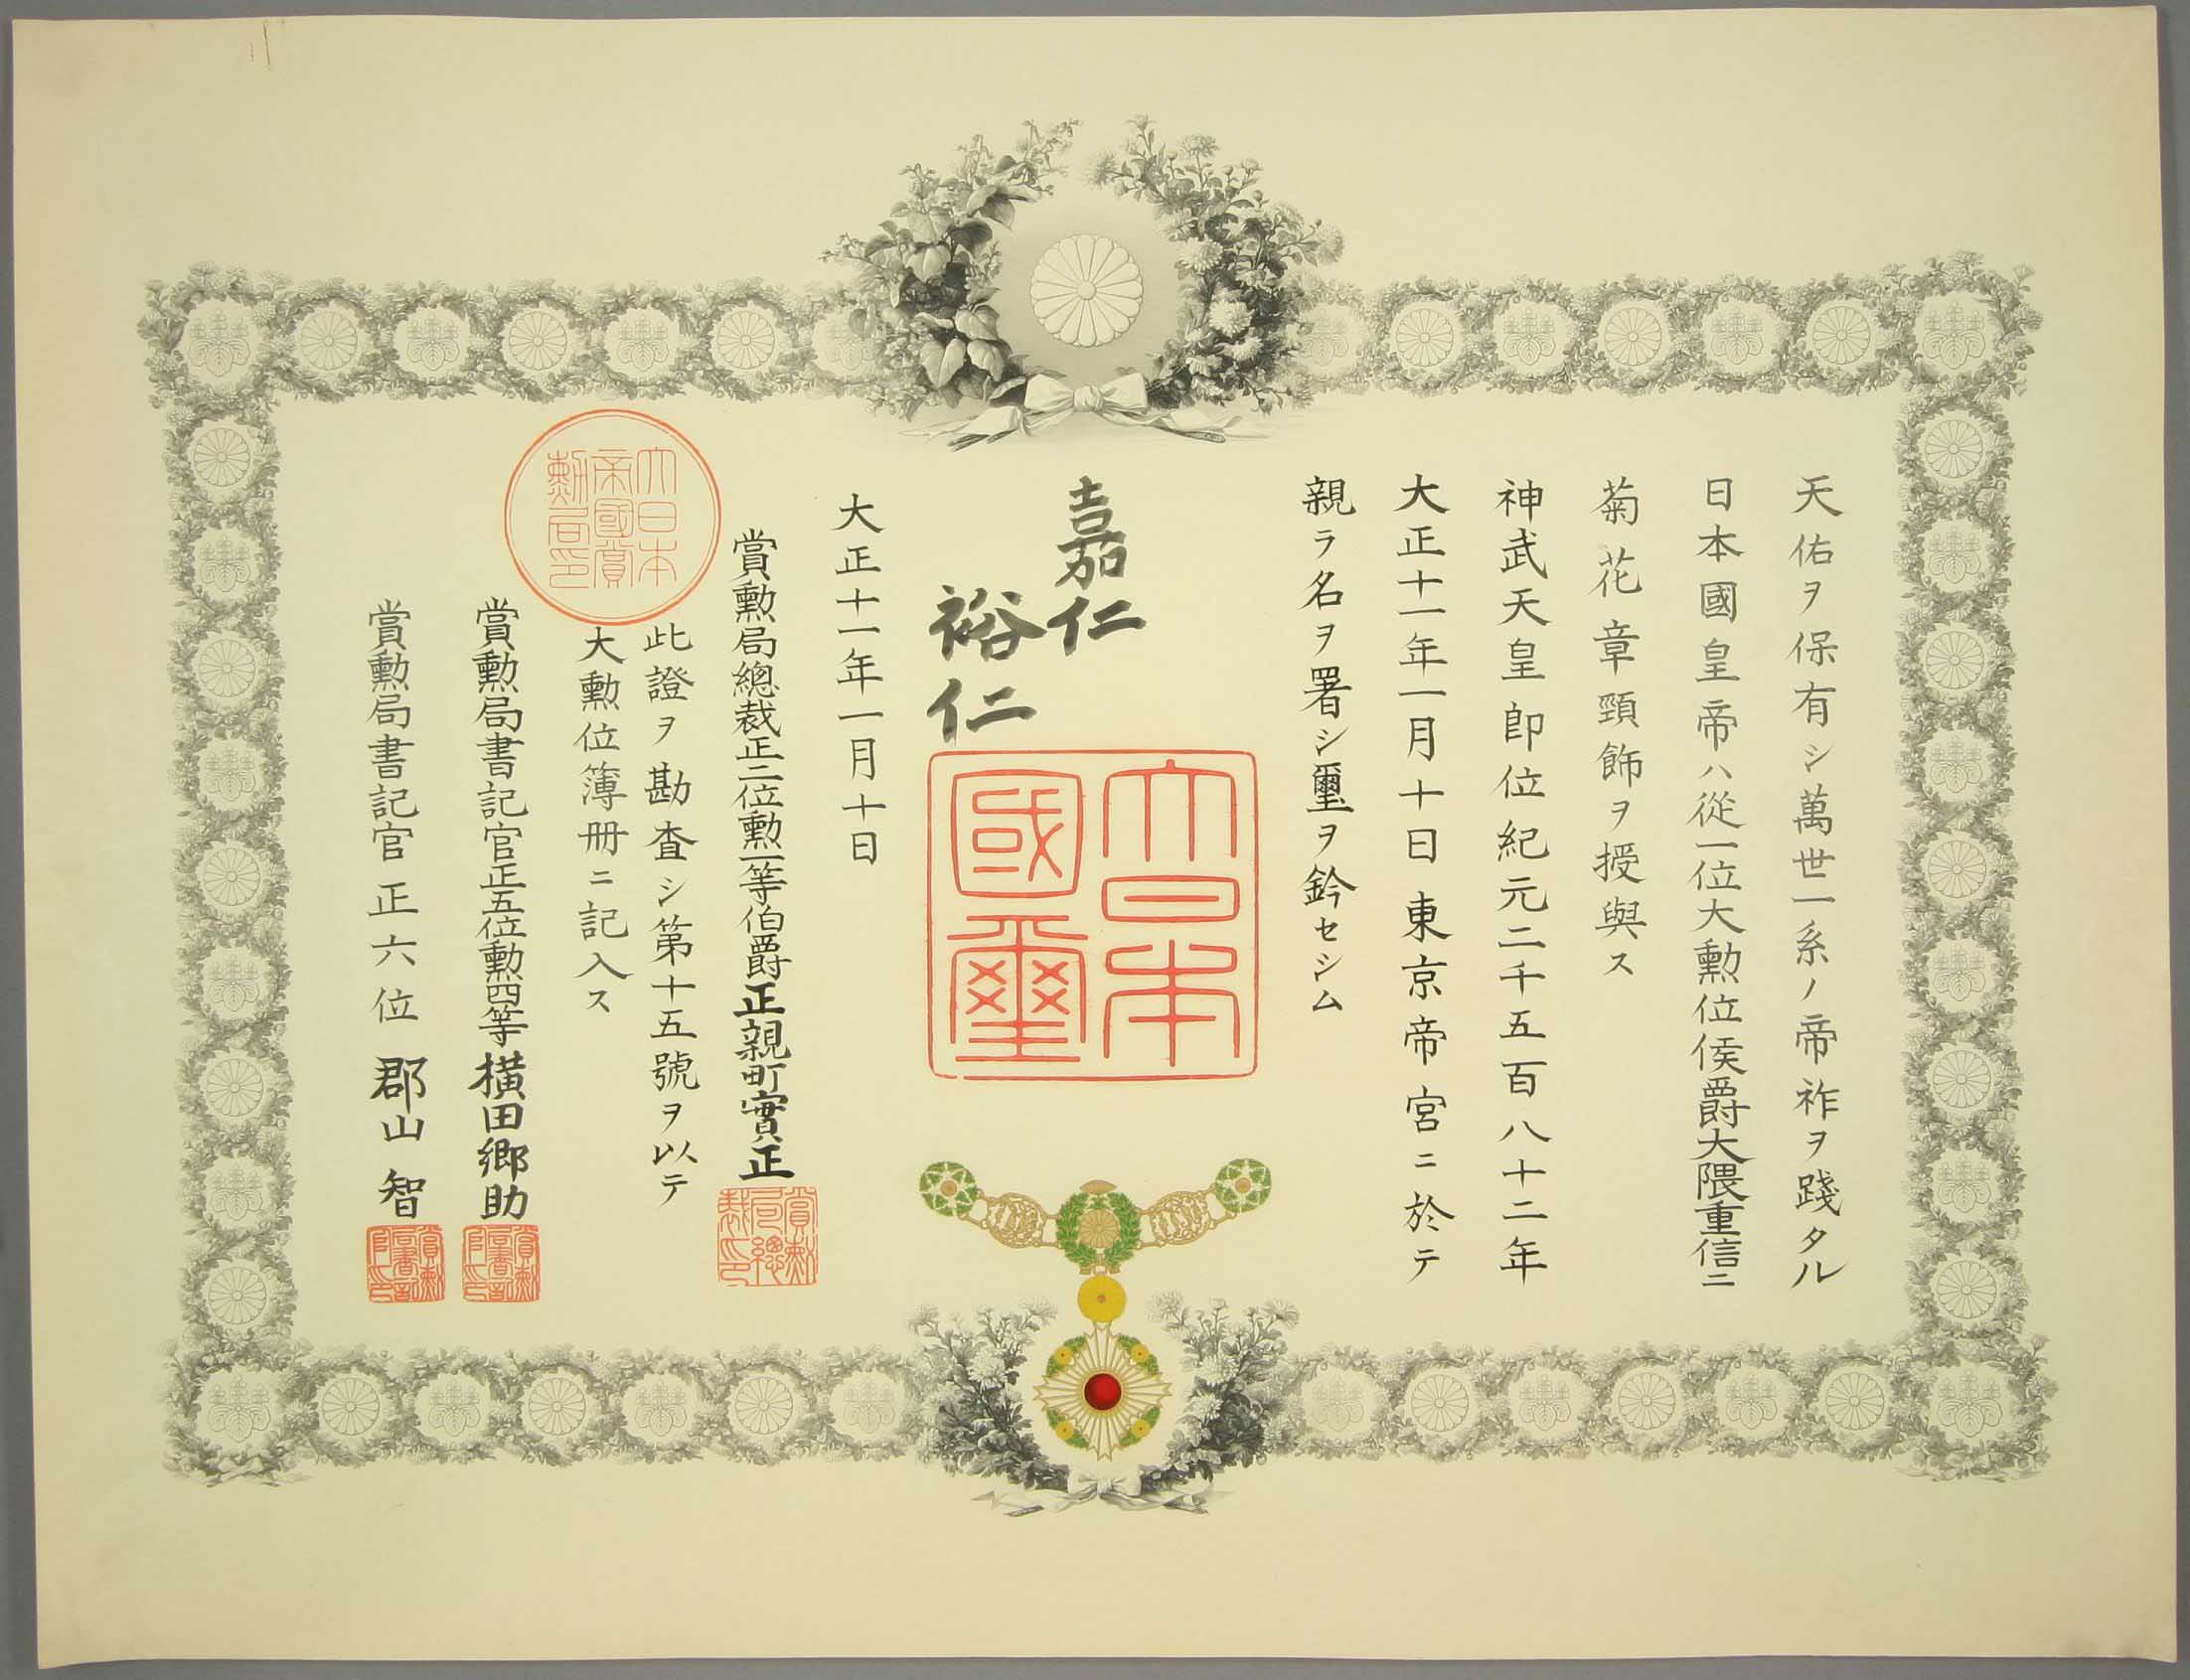 天佑ヲ保有シ萬世一系ノ帝祚ヲ踐タル
日本國皇帝ハ從一位大勲位侯爵大隈重信ニ
菊花章頸飾ヲ授與ス
神武天皇即位紀元二千五百八十二年
大正十一年一月十日東京帝宮ニ於テ
親ラ名ヲ署シ璽ヲ鈐セシム
嘉仁
裕仁
大日本
國璽
大正十一年一月十日
賞勲局總裁正二位勲一等伯爵正親町實正
賞勲局總裁印
大日本帝國賞勲局印
此證ヲ勘査シ第十五號ヲ以テ
大勲位簿冊ニ記入ス
賞勲局書記官正五位勲四等橫田郷助
賞勲局書記官印
賞勲局書記官正六位郡山智
賞勲局書記官印